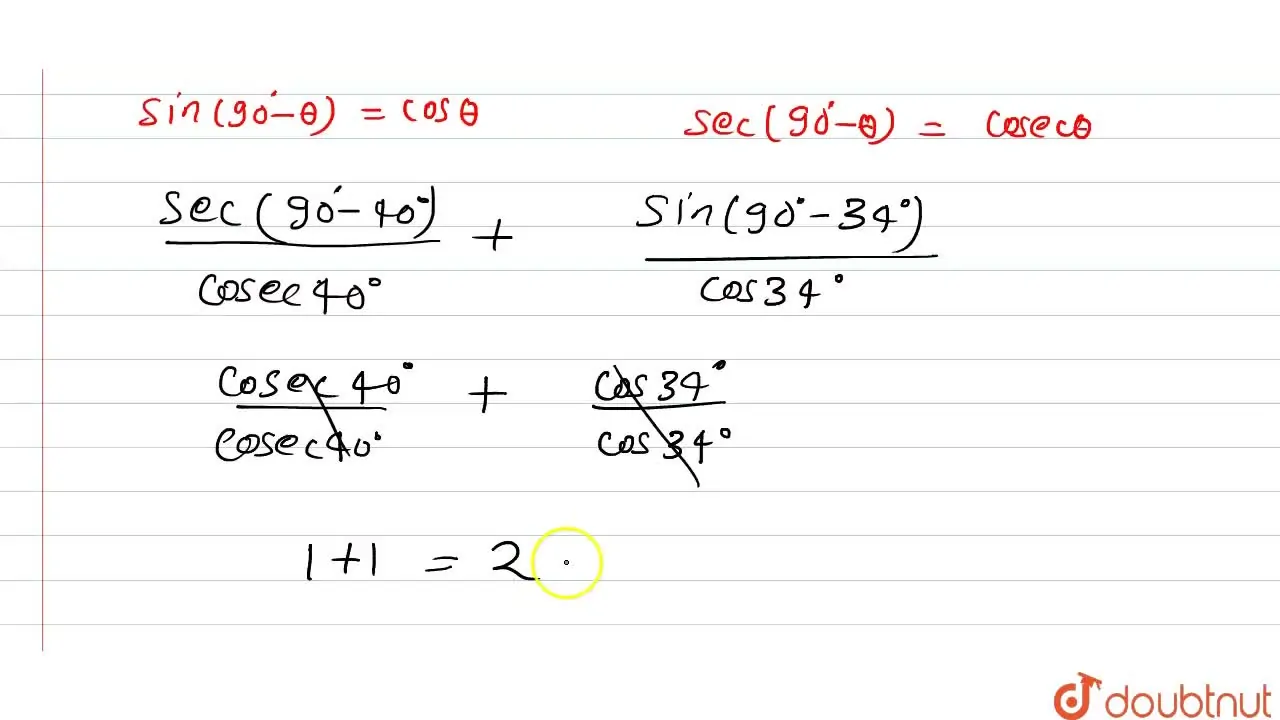 sin(90°-θ) = cosθ    sec(90°-θ) = cosecθ
sec(90°-40°)/cosec40° + sin(90°-34°)/cos34°
cosec40°/cosec40° + cos34°/cos34°
1+1 = 2
doubtnut